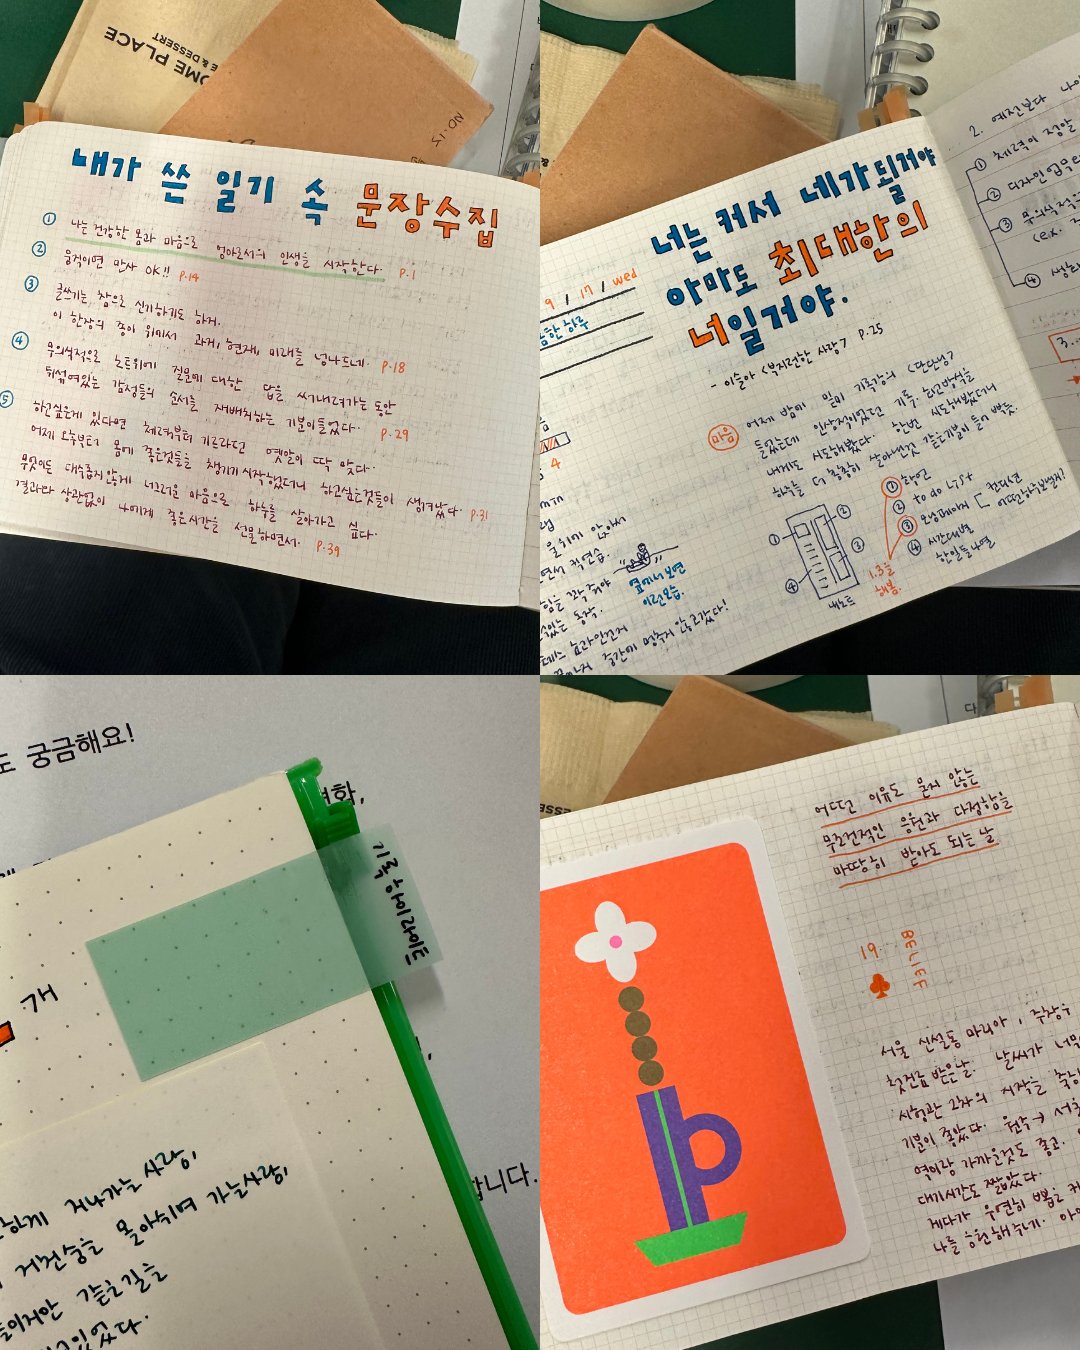 OME PLACE
E & DESSERT
NO.15
내가 쓴 일기 속 문장수집
① 나는 건강한 몸과 마음으로 엄마로서의 인생을 시작한다. p.1
② 움직이면 만사 OK!! p.14
③ 글쓰기는 참으로 신기하기도 하지.
이 한장의 종이 위에서 과거, 현재, 미래를 넘나드네. p.18
④ 무의식적으로 노트위에 질문에 대한 답을 써내려가는 동안
뒤섞여있는 감정들의 순서를 재배치하는 기분이들었다. p.29
⑤ 하고싶은게 있다면 체력부터 기르라던 옛말이 딱 맞다.
어제 오늘부터 몸에 좋은것들을 챙기기 시작했더니 하고싶은것들이 생겨났다. p.31
무엇이든 대수롭지않게 너그러운 마음으로 하루를 살아가고 싶다.
결과랑 상관없이 나에게 좋은시간을 선물하면서. p.39
너는 커서 네가 될거야
아마도 최대한의
너일거야.
- 이슬아 <부지런한 사랑> p.25
9 / 17 / wed
한 하루
마음
어제 밤에 밀미 기록광의 <단단님>
들었는데 인상적이었던 기록. 회고방식을
내게도 시도해봤다. 한번 시도해봤더니
하루를 더 촘촘히 살아낸것 같은기분이 들어 뿌듯.
① 확언
② to do list
③ 모닝페이지
④ 시간대별
한일들나열
컨디션
①
②
③
④
내노트
1.3을
해봄.
4
물위에 앉아서
면서 킥연습.
힘을 꽉 주어
있는 동작.
옆에서보면
이런모습.
중간에 멈추지 않고갔다!
2. 예전보다 나
① 체력이 정말
② 디자인업무
③ 무의식적
(ex.
④
3...
도 궁금해요!
변화,
기록 하이라이트
개
하게 지나가는 사랑,
거친숨을 몰아쉬며 가는사람,
들이지만 같은길을
있었다.
합니다.
다
어떠한 이유도 묻지 않는
무조건적인 응원과 다정함을
마땅히 받아도 되는 날
19.
BELIEF
서울 신설동 마리아, 주창우
첫진료 받은날. 날씨가 너무
시험관 2차의 시작을 축하
기분이 좋았다. 원주→서울
역이랑 가까운것도 좋고.
대기시간도 짧았다.
게다가 우연히 뽑은 카
나를 응원해주네.